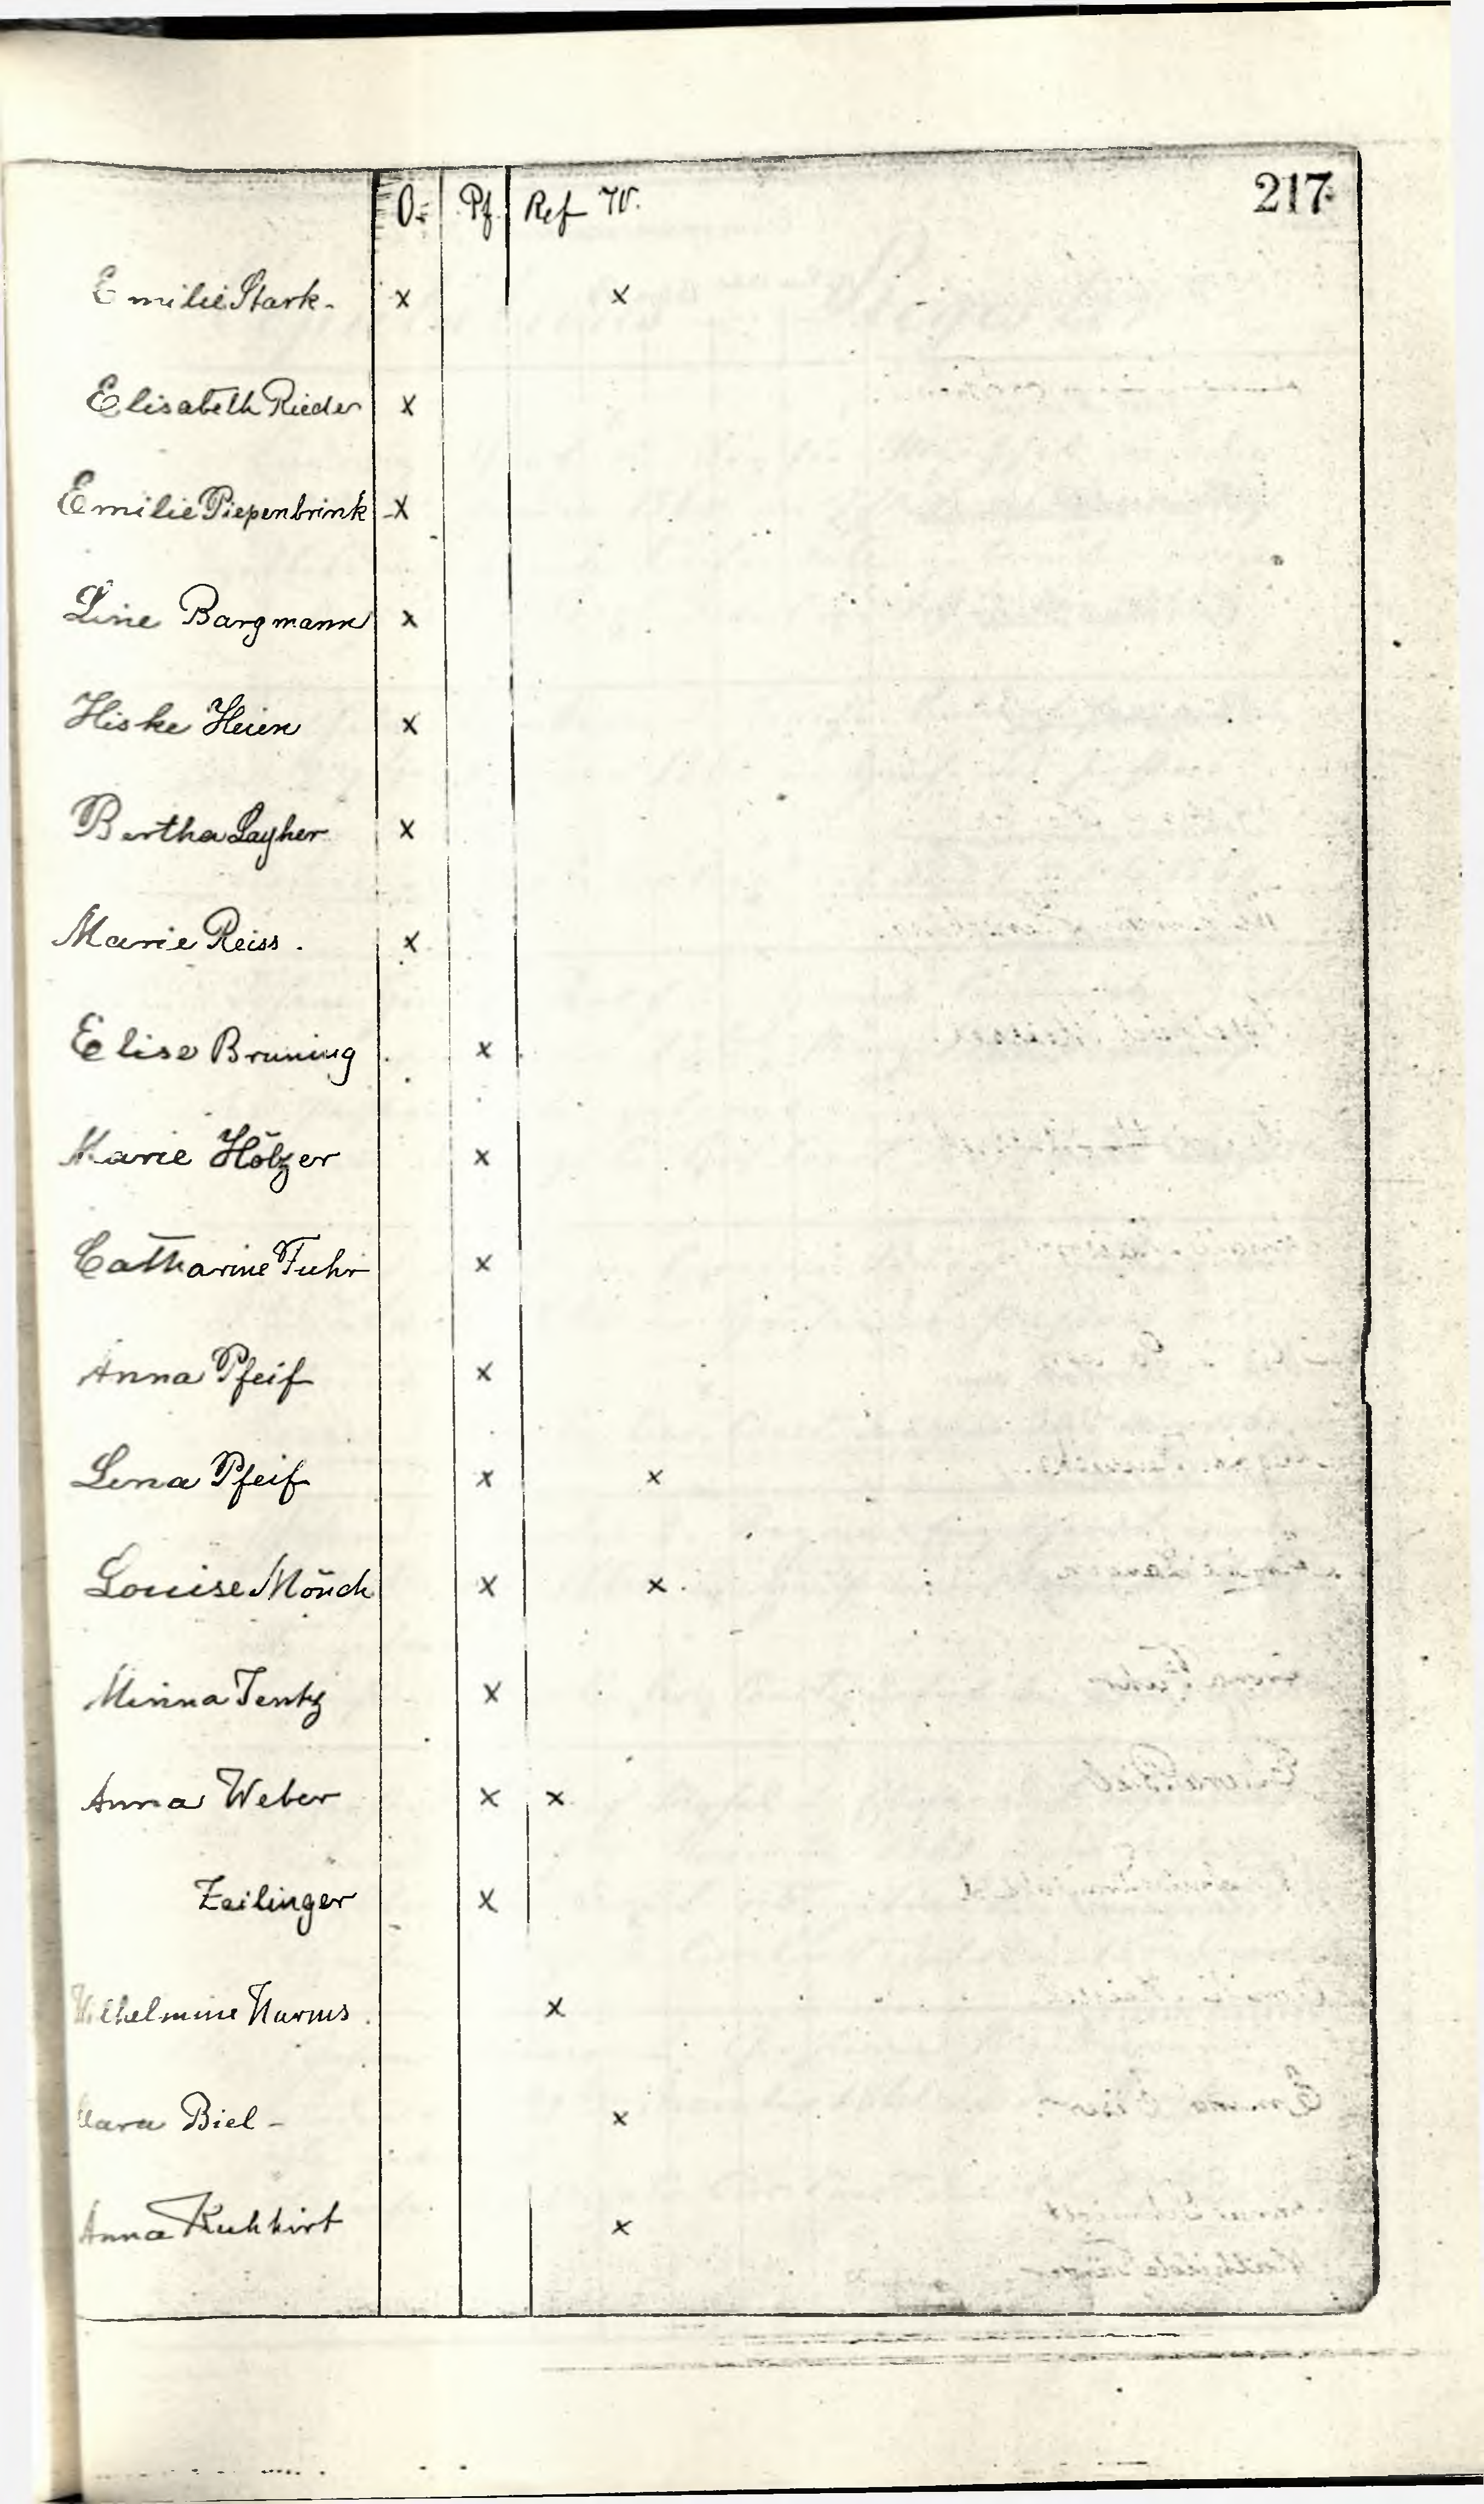 217
O. Pf. Ref W.
Emilie Stark - x x
Elisabeth Rieder x
Emilie Piepenbrink x
Line Bargmann x
Hiske Heien x
Bertha Layher x
Marie Reiss. x
Elise Bruning x
Marie Hölzer x
Catharine Fuhr x
Anna Pfeif x
Lena Pfeif x x
Louise Mönch x x
Minna Jentz x
Anna Weber x x
Zeilinger x
Wilhelmine Harms. x
Clara Biel - x
Anna Kuhhirt x